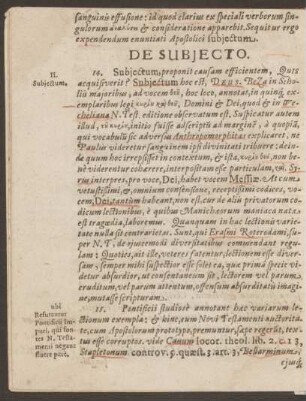 sanguinis effusione: id quod clarius ex speciali verborum sin-
gulorum & consideratione apparebit. Sequitur ergo
expendendum enuntiati Apostolici subjectum.
DE SUBJECTO.
II.
Subjectum.
10. Subjectum, proponit causam efficientem, Quis
acquisiverit? Subjectum hoc est, DEUS. BEZA in Scho-
liis majoribus, ad vocem θεῦ, hoc loco, annotat, in quinq; ex-
emplaribus legi κυρίου καὶ θεοῦ, Domini & Dei, quod & in We-
cheliana N. Test. editione observatum est. Suspicatur autem
illud, κυρίου, initio fuisse adscriptum ad marginem, à quopiā,
qui vocabulū sic adversus Anthropomorphitas explicaret, ne
Paulus videretur sanguinem ipsi divinitati tribuere: dein-
de quum hoc irrepsisset in contextum, & ista, κυρίου θεοῦ, non be-
ne viderentur cohærere, interpositam esse particulam, καὶ. Sy-
rus interpres, pro voce, Dei, habet vocem Messiæ. At cum
vetustissimi, &, omnium consensione, receptissimi codices, vo-
cem, Dei, tantùm habeant, non est, cur de aliis privatorum co-
dicum lectionibus, è quibus Manichæorum manducata
est tragœdia, laboremus. Quanquam in hac lectionū varie-
tate nulla sit contrarietas. Sunt, qui Erasmi Roterodami, su-
per N. T. de ejuscemodi diversitatibus commendant regu-
lam: Quoties, ait ille, veteres fatentur, lectionem esse diver-
sam, semper mihi suspectior esse solet ea, quæ primâ specie vi-
detur absurdior, ut consentaneum sit, lectorem vel parum
eruditum, vel parum attentum, offensum absurditatis imagi-
ne, mutasse scripturam.
ubi
Refutantur
Pontificii Im-
puri, qui fon-
tes N. Testa-
menti negant
fluere puri.
11. Pontificii studiosè annotant hac variarum le-
ctionum exempla: & hinc, eum Novi Testamenti auctorita-
te, cum Apostolorum prototypo, premuntur, sæpe regerūt, tex-
tus esse corruptos. vide Canum locor. theol. lib. 2. c. 13,
Stapletonum controv. 5. quæst. 3. art. 3. Bellarminum,
ejusq;